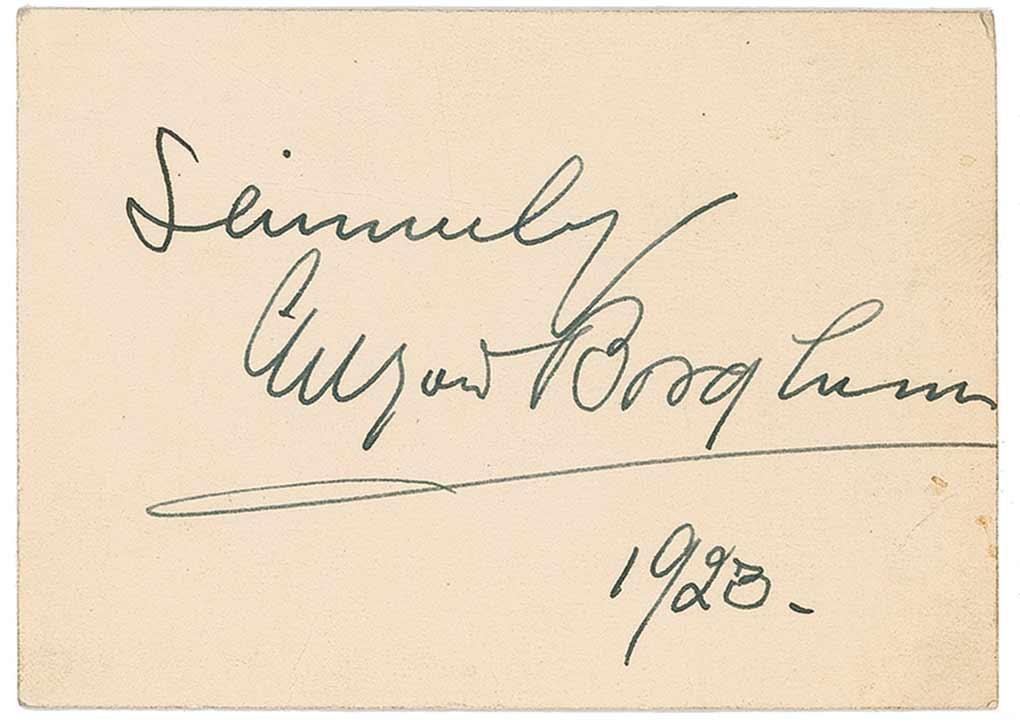 Sincerely
Gutzon Borglum
1923.